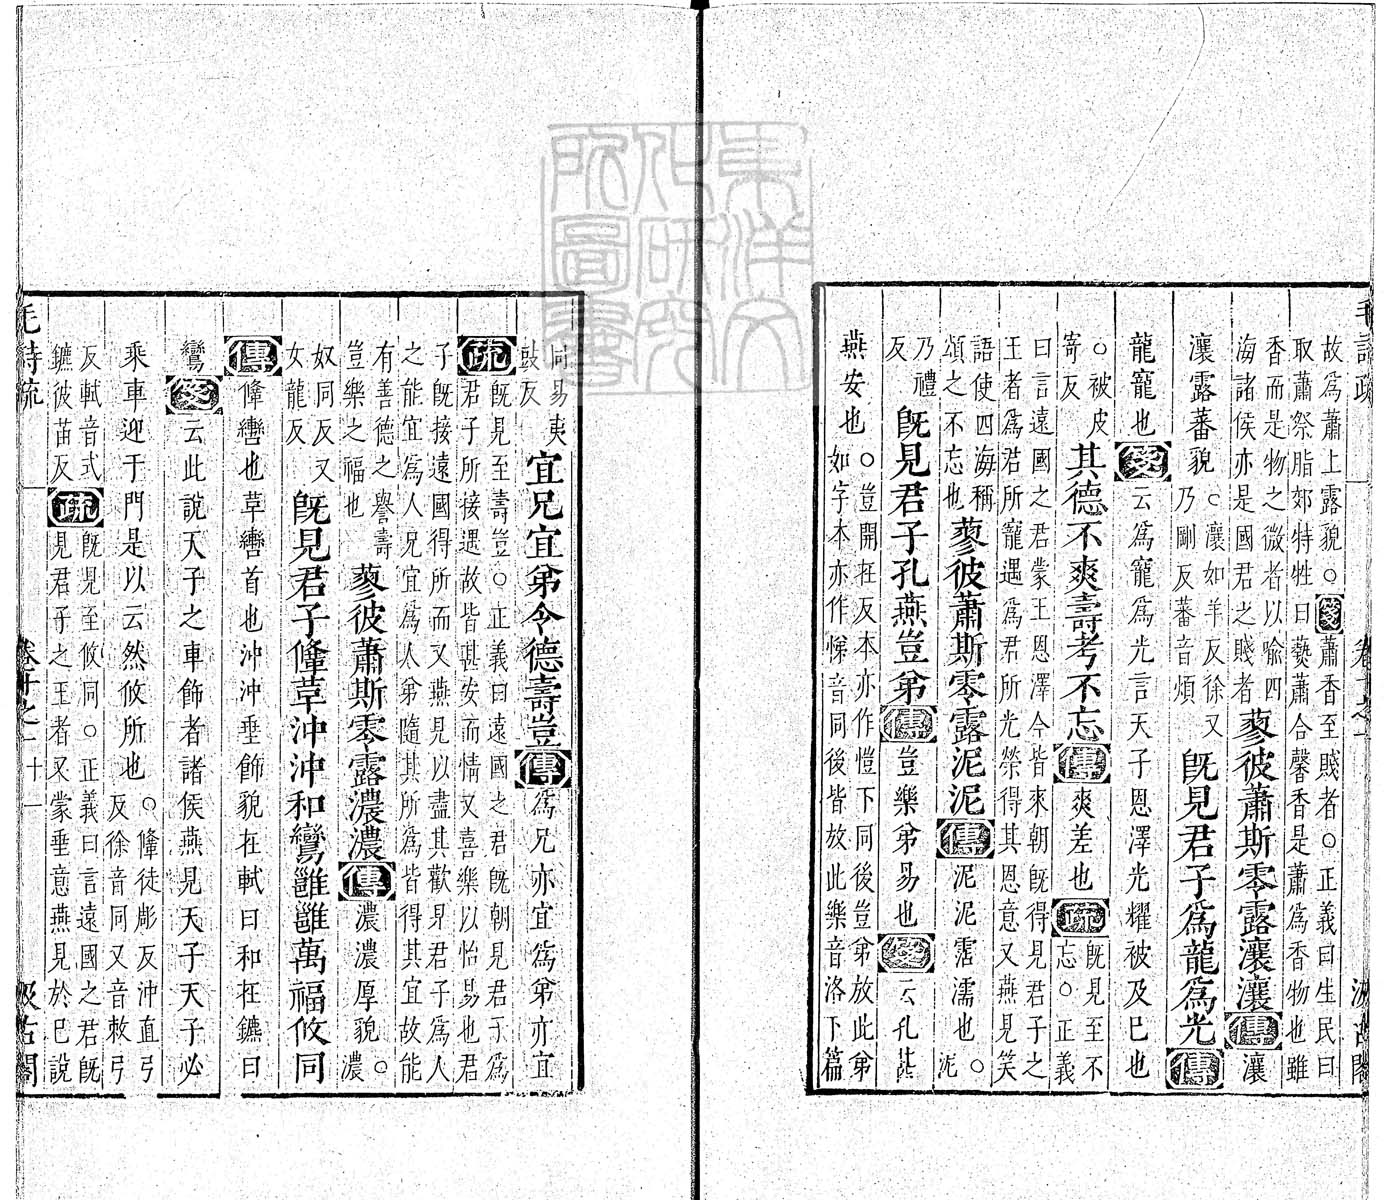 毛詩疏 卷十之一 汲古閣
故爲蕭上露貌○箋蕭香至賤者○正義曰生民曰
取蕭祭脂郊特牲曰爇蕭合馨香是蕭爲香物也雖
香而是物之微者以喻四
海諸侯亦是國君之賤者
蓼彼蕭斯零露瀼瀼傳瀼
瀼露蕃貌
○瀼如羊反徐又
乃剛反蕃音煩
旣見君子爲龍爲光傳
龍寵也箋云爲寵爲光言天子恩澤光耀被及已也
○被皮
寄反
其德不爽壽考不忘傳爽差也疏
旣見至不
忘○正義
曰言遠國之君蒙王恩澤今皆來朝旣得見君子之
王者爲君所寵遇爲君所光榮得其恩意又燕見笑
語使四海稱
頌之不忘也
蓼彼蕭斯零露泥泥傳泥泥霑濡也
○
泥
乃禮
反
旣見君子孔燕豈弟傳豈樂弟易也箋云孔甚
燕安也
○豈開在反本亦作愷下同後豈弟放此弟
如字本亦作悌音同後皆放此樂音洛下篇
同易夷
豉反
宜兄宜弟令德壽豈傳爲兄亦宜爲弟亦宜
疏
旣見至壽豈○正義曰遠國之君旣朝見君子爲
君子所接遇故皆甚安而情又喜樂以怡易也君
子旣接遠國得所而又燕見以盡其歡是君子爲人
之能宜爲人兄宜爲人弟隨其所爲皆得其宜故能
有善德之譽壽
豈樂之福也
蓼彼蕭斯零露濃濃傳濃濃厚貌
○
濃
奴同反又
女龍反
旣見君子鞗革沖沖和鸞雝雝萬福攸同
傳鞗轡也革轡首也沖沖垂飾貌在軾曰和在鑣曰
鸞箋云此說天子之車飾者諸侯燕見天子天子必
乘車迎于門是以云然攸所也
○鞗徒彫反沖直弓
反徐音同又音敕弓
反軾音式
鑣彼苗反
疏
旣見至攸同○正義曰言遠國之君旣
見君子之王者又蒙垂意燕見於已說
毛詩疏 卷十之一 十一 汲古閣
東洋文化研究所圖書